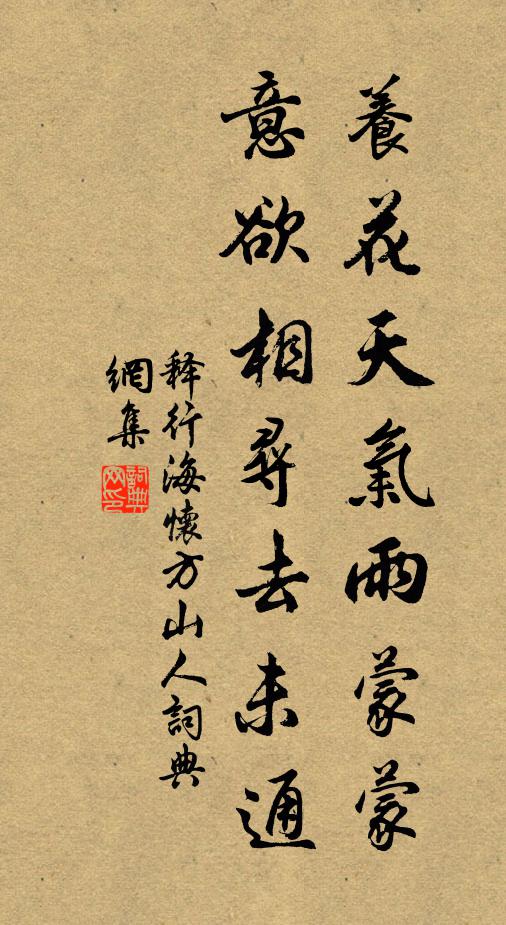 養花天氣雨蒙蒙
意欲相尋去未通
释行海懷方山人詞典
網集
詞典網印